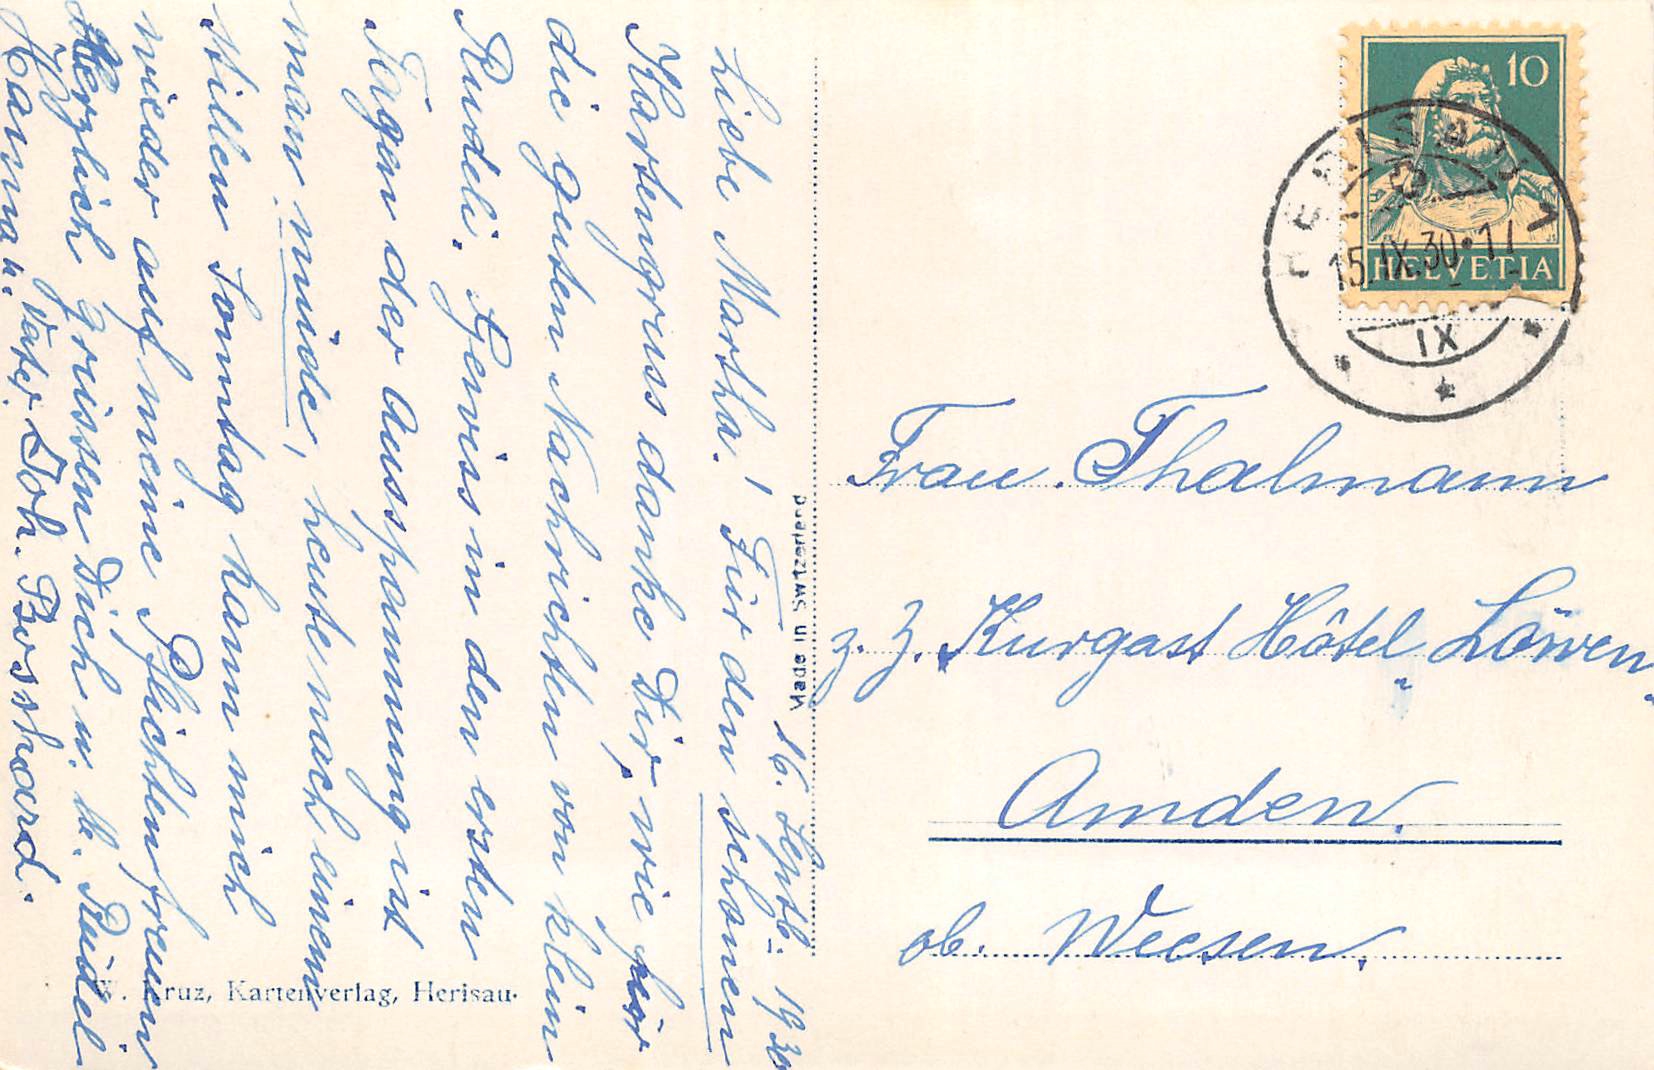 16. Septb. 1930
Liebe Martha! Für den schönen
Kartengruss danke Dir, wie für
die guten Nachrichten von klein
Ruedeli. Gewiss in den ersten
Tagen der Ausspannung ist
man müde, heute nach einem
stillen Sonntag kann mich
wieder auf meine Pflichten freuen
Herzlich grüssen Dich u. lb. Ruedeli
Hanna u. Vater Joh. Bosshard.
Made in Switzerland
W. Kruz, Kartenverlag, Herisau.
10
HELVETIA
HERISAU 1
15.IX.30·17
IX
Frau Thalmann
z. Z. Kurgast Hôtel Löwen
Amden.
ob. Weesen.